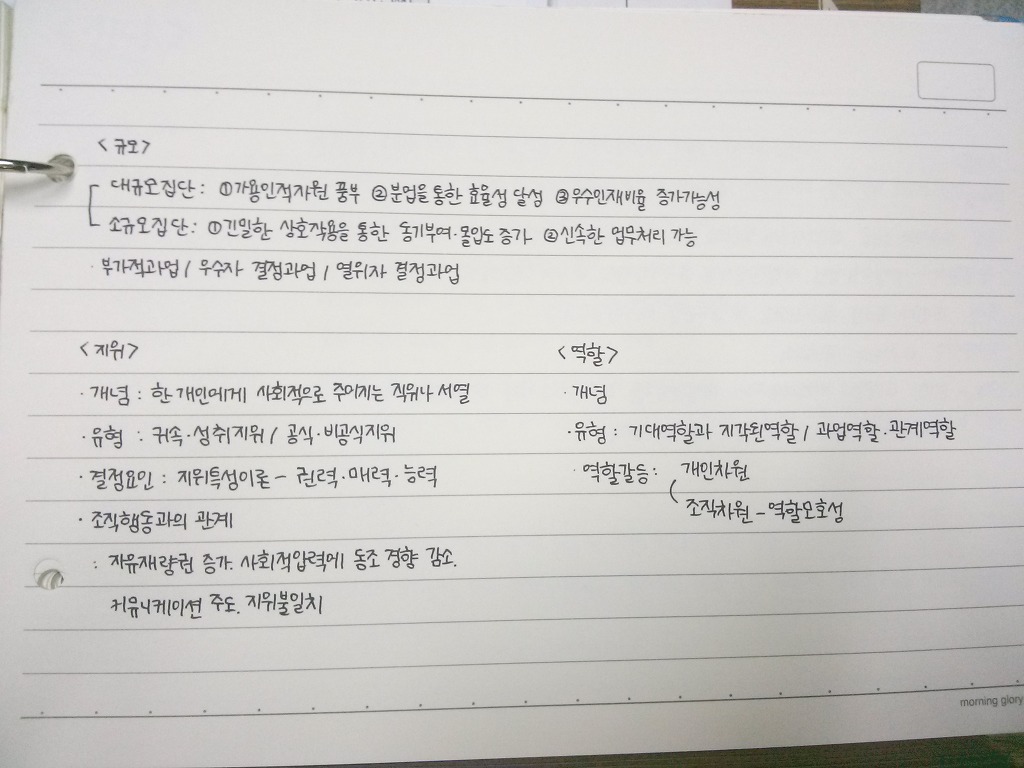 <규모>
대규모집단 : ①가용인적자원 풍부 ②분업을 통한 효율성 달성 ③우수인재비율 증가가능성
소규모집단 : ①긴밀한 상호작용을 통한 동기부여·몰입도 증가 ②신속한 업무처리 가능
· 부가적과업 / 우수자 결정과업 / 열위자 결정과업
<지위>
· 개념 : 한 개인에게 사회적으로 주어지는 직위나 서열
· 유형 : 귀속·성취지위 / 공식·비공식지위
· 결정요인 : 지위특성이론 - 권력·매력·능력
· 조직행동과의 관계
: 자유재량권 증가. 사회적압력에 동조 경향 감소.
커뮤니케이션 주도. 지위불일치
<역할>
· 개념
· 유형 : 기대역할과 지각된역할 / 과업역할·관계역할
· 역할갈등 : 개인차원
조직차원 - 역할모호성
morning glory